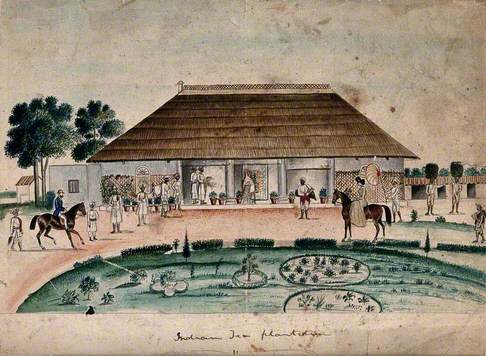 Indian Tea plantation